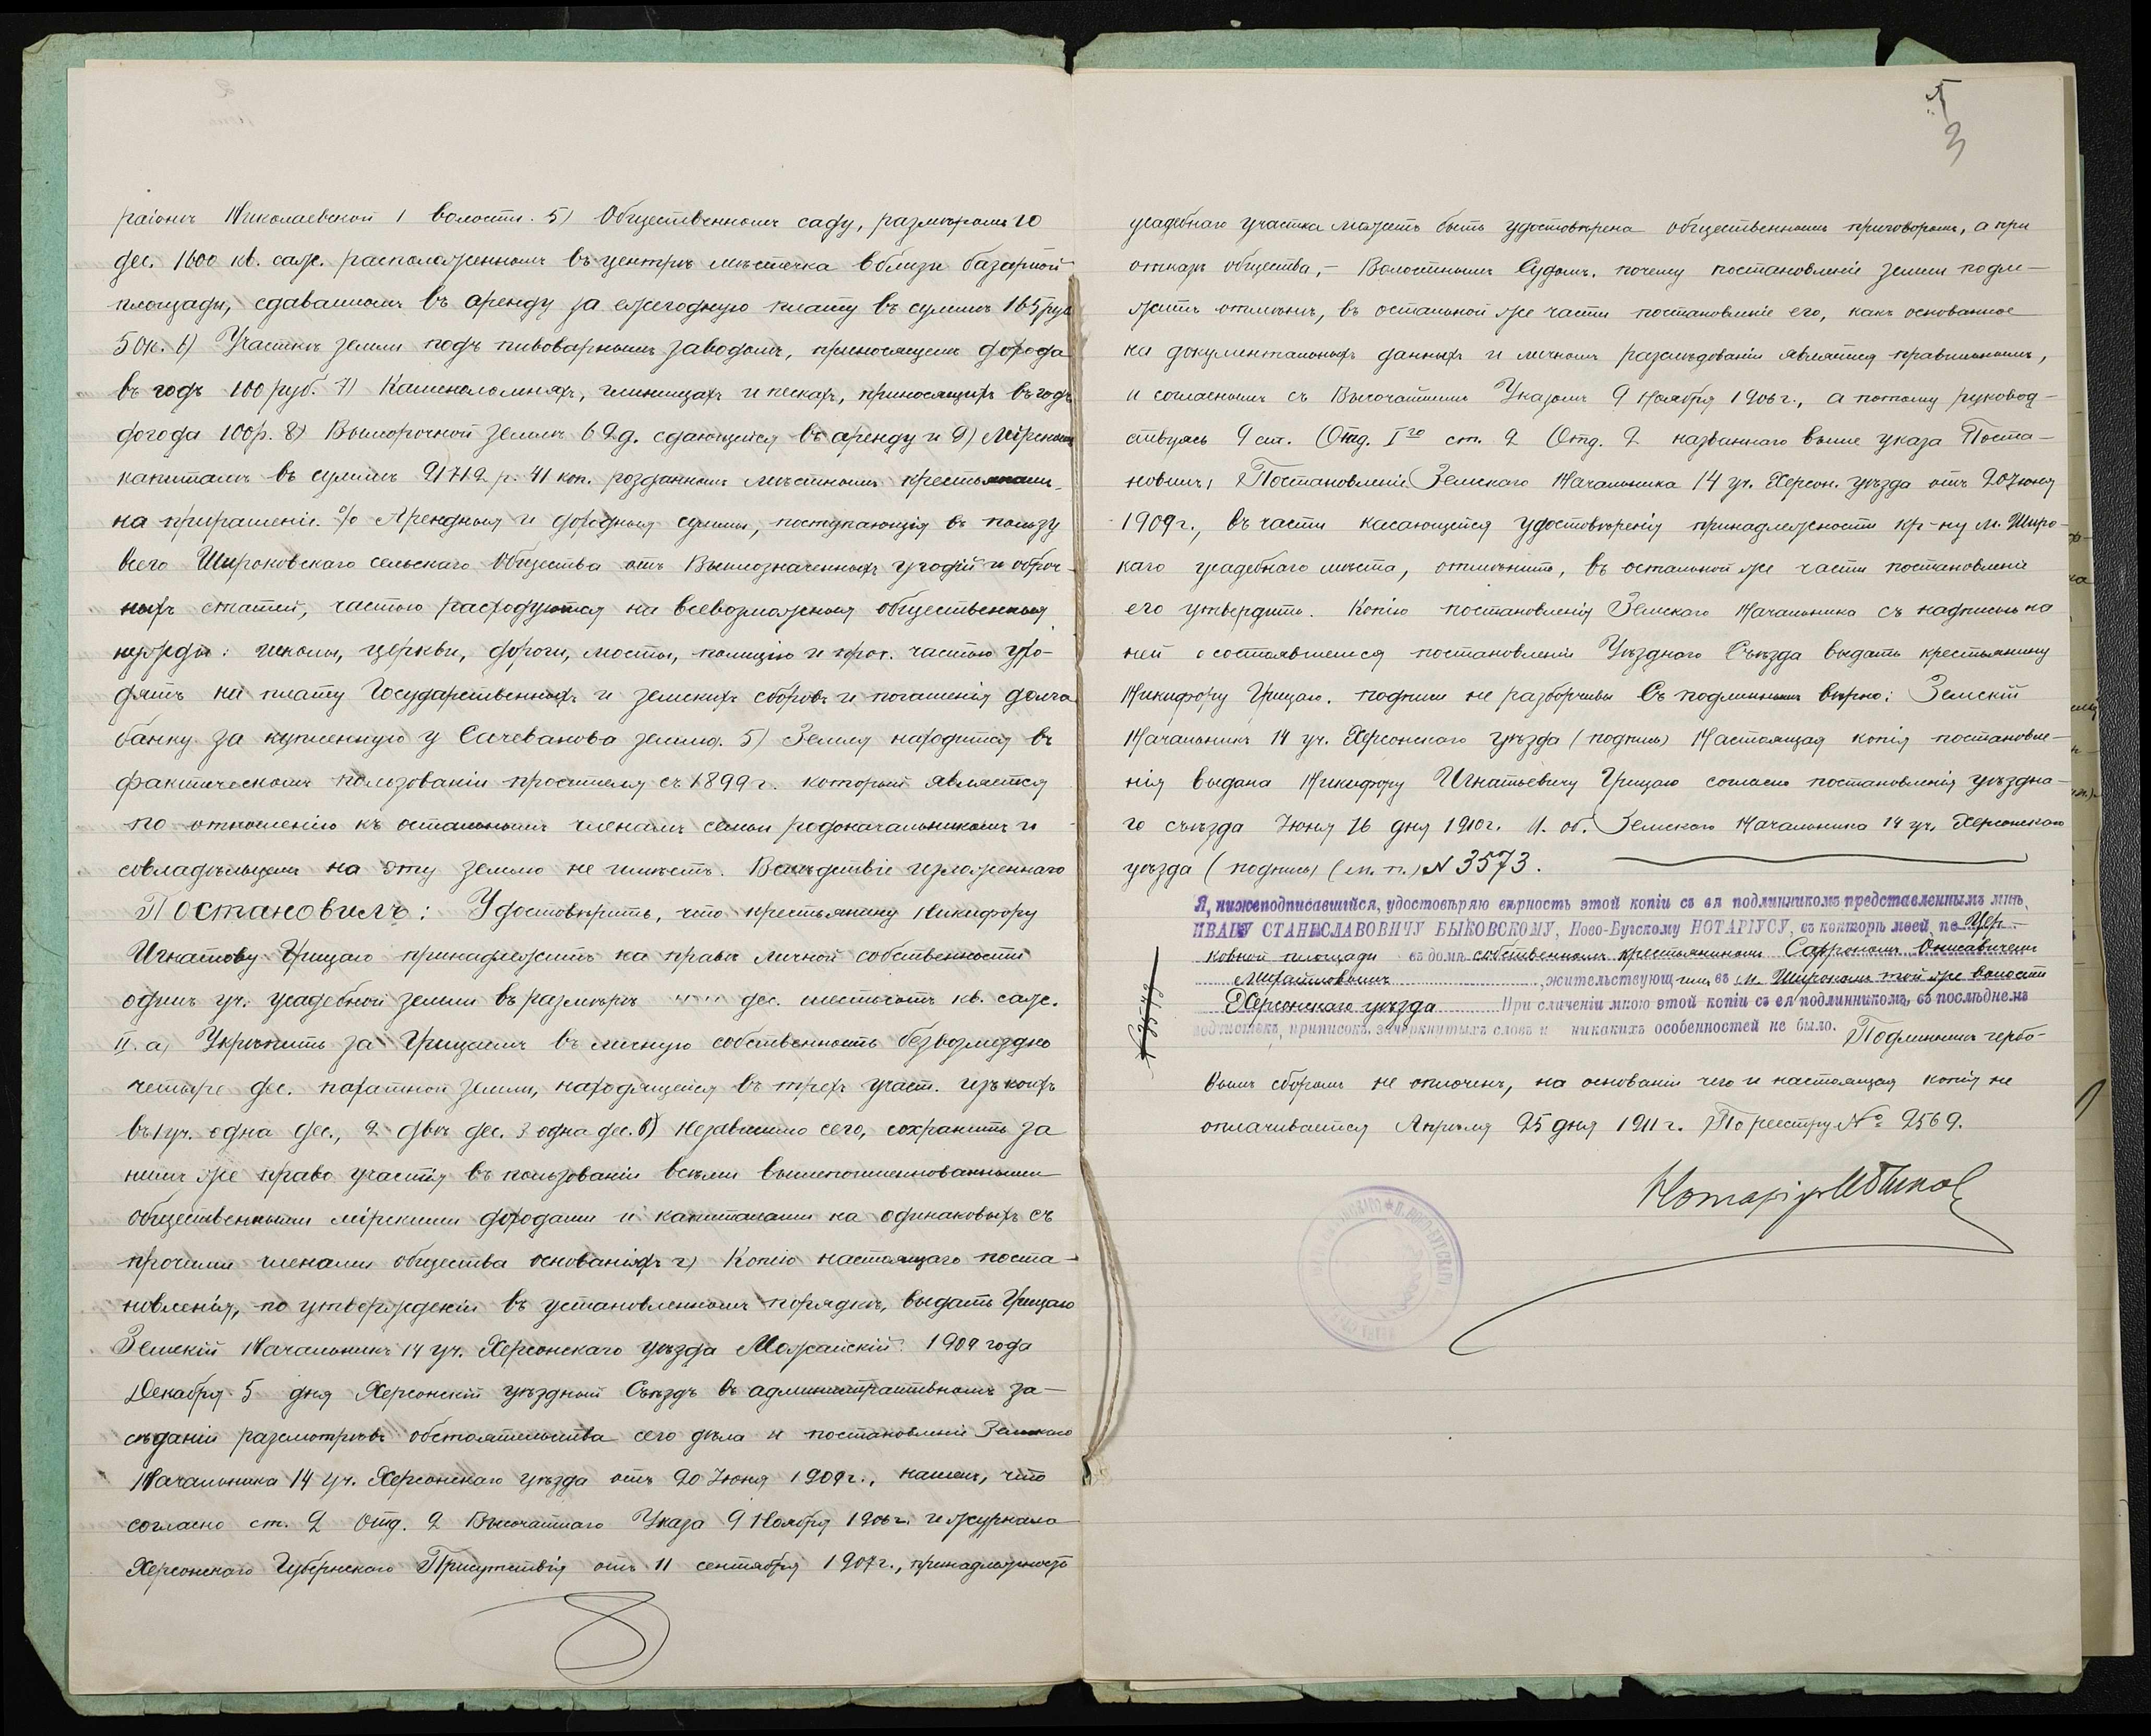 раіонѣ Николаевской 1 волости. 5) Общественномъ саду, размѣромъ 10
дес. 1600 кв. саж. расположенномъ въ центрѣ мѣстечка вблизи базарной
площади, сдаваемомъ въ аренду за ежегодную плату въ суммѣ 165 руб
50к. 6) Участкѣ земли подъ пивовареннымъ заводомъ, приносящемъ дохода
въ годъ 100 руб. 7) Каменоломняхъ, глинищахъ и пескахъ, приносящихъ въ годъ
дохода 100р. 8) Выморочной землѣ 62д. сдающейся въ аренду и 9) Мірскомъ
капиталѣ въ суммѣ 21712 р. 41 коп. розданномъ мѣстнымъ крестьянамъ
на приращеніе % Арендныя и доходныя суммы, поступающія въ пользу
всего Широковскаго сельскаго Общества отъ Вышеозначенныхъ угодій и оброч-
ныхъ статей, частью расходуются на всевозможныя общественныя
нужды: школы, церкви, дороги, мосты, полицію и проч. частью ухо-
дятъ на плату Государственныхъ и земскихъ сборовъ и погашенія долга
банку за купленную у Сачеванова землю. 5) Земля находится въ
фактическомъ пользованіи просителя съ 1899 г. который является
по отношенію къ остальнымъ членамъ семьи родоначальникомъ и
совладѣльцевъ на эту землю не имѣетъ. Вслѣдствіе изложеннаго
Постановилъ: Удостовѣрить, что крестьянину Никифору
Игнатову Грицаю принадлежитъ на правѣ личной собственности
одинъ уч. усадебной земли въ размѣрѣ " " дес. шестьсотъ кв. саж.
II. а) Укрѣпить за Грицаемъ въ личную собственность безвозмездно
четыре дес. пахатной земли, находящейся въ трехъ участ. изъ коихъ
въ 1 уч. одна дес., 2 двѣ дес. 3 одна дес. б) Независимо сего, сохранить за
нимъ же право участія въ пользованіи всѣми вышепоименованными
общественными мірскими доходами и капиталами на одинаковыхъ съ
прочими членами общества основаніяхъ г) Копію настоящаго поста-
новленія, по утвержденіи въ установленномъ порядкѣ, выдать Грицаю
Земскій Начальникъ 14 уч. Херсонскаго уѣзда Можайскій. 1909 года
Декабря 5 дня Херсонскій уѣздный Съѣздъ въ административномъ за-
сѣданіи разсмотрѣвъ обстоятельства сего дѣла и постановленіе Земскаго
Начальника 14 уч. Херсонскаго уѣзда отъ 20 Іюня 1909 г., нашелъ, что
согласно ст. 2 Отд. 2 Высочайшаго Указа 9 Ноября 1906 г. и журнала
Херсонскаго Губернскаго Присутствія отъ 11 сентября 1907 г., принадлежность
5
3
усадебнаго участка можетъ быть удостовѣрена общественнымъ приговоромъ, а при
отказѣ общества,- Волостнымъ Судомъ, почему постановленіе земли подле-
житъ отмѣнѣ, въ остальной же части постановленіе его, какъ основанное
на документальныхъ данныхъ и личномъ разслѣдованіи является правильнымъ,
и согласнымъ съ Высочайшимъ Указомъ 9 Ноября 1906 г., а потому руковод-
ствуясь 9 ст. Отд. Iго ст. 2 Отд. 2 названнаго выше указа Поста-
новилъ: Постановленіе Земскаго Начальника 14 уч. Херсон. уѣзда отъ 20 Іюня
1909 г., въ части касающейся удостовѣренія принадлежности кр-ну м. Широ-
каго усадебнаго мѣста, отмѣнить, въ остальной же части постановленіе
его утвердить. Копію постановленія Земскаго Начальника съ надписью на
ней о состоявшемся постановленіи Уѣзднаго Съѣзда выдать крестьянину
Никифору Грицаю. подписи не разборчивы Съ подлиннымъ вѣрно: Земскій
Начальникъ 14 уч. Херсонскаго уѣзда (подпись) Настоящая копія постановле-
нія выдана Никифору Игнатьевичу Грицаю согласно постановленія уѣздна-
го съѣзда Іюня 16 дня 1910 г. И. об. Земскаго Начальника 14 уч. Херсонскаго
уѣзда (подпись) (м. п.) N 3573.
Я, нижеподписавшійся, удостовѣряю вѣрность этой копіи съ ея подлинникомъ представленнымъ мнѣ,
ИВАНУ СТАНИСЛАВОВИЧУ БЫКОВСКОМУ, Ново-Бугскому НОТАРІУСУ, въ конторѣ моей, по Цер-
ковной площади въ домѣ собственномъ крестьяниномъ Сафрономъ Онисавичемъ
жительствующимъ въ м. Широкомъ той же волости
Херсонскаго уѣзда При сличеніи мною этой копіи съ ея подлинникомъ, въ послѣднемъ
подчистокъ, приписокъ, зачеркнутыхъ словъ и никакихъ особенностей не было. Подлинникъ гербо-
вымъ сборомъ не оплоченъ, на основаніи чего и настоящая копія не
оплачивается Апрѣля 25 дня 1911 г. По реестру № 2569.
Нотаріусъ